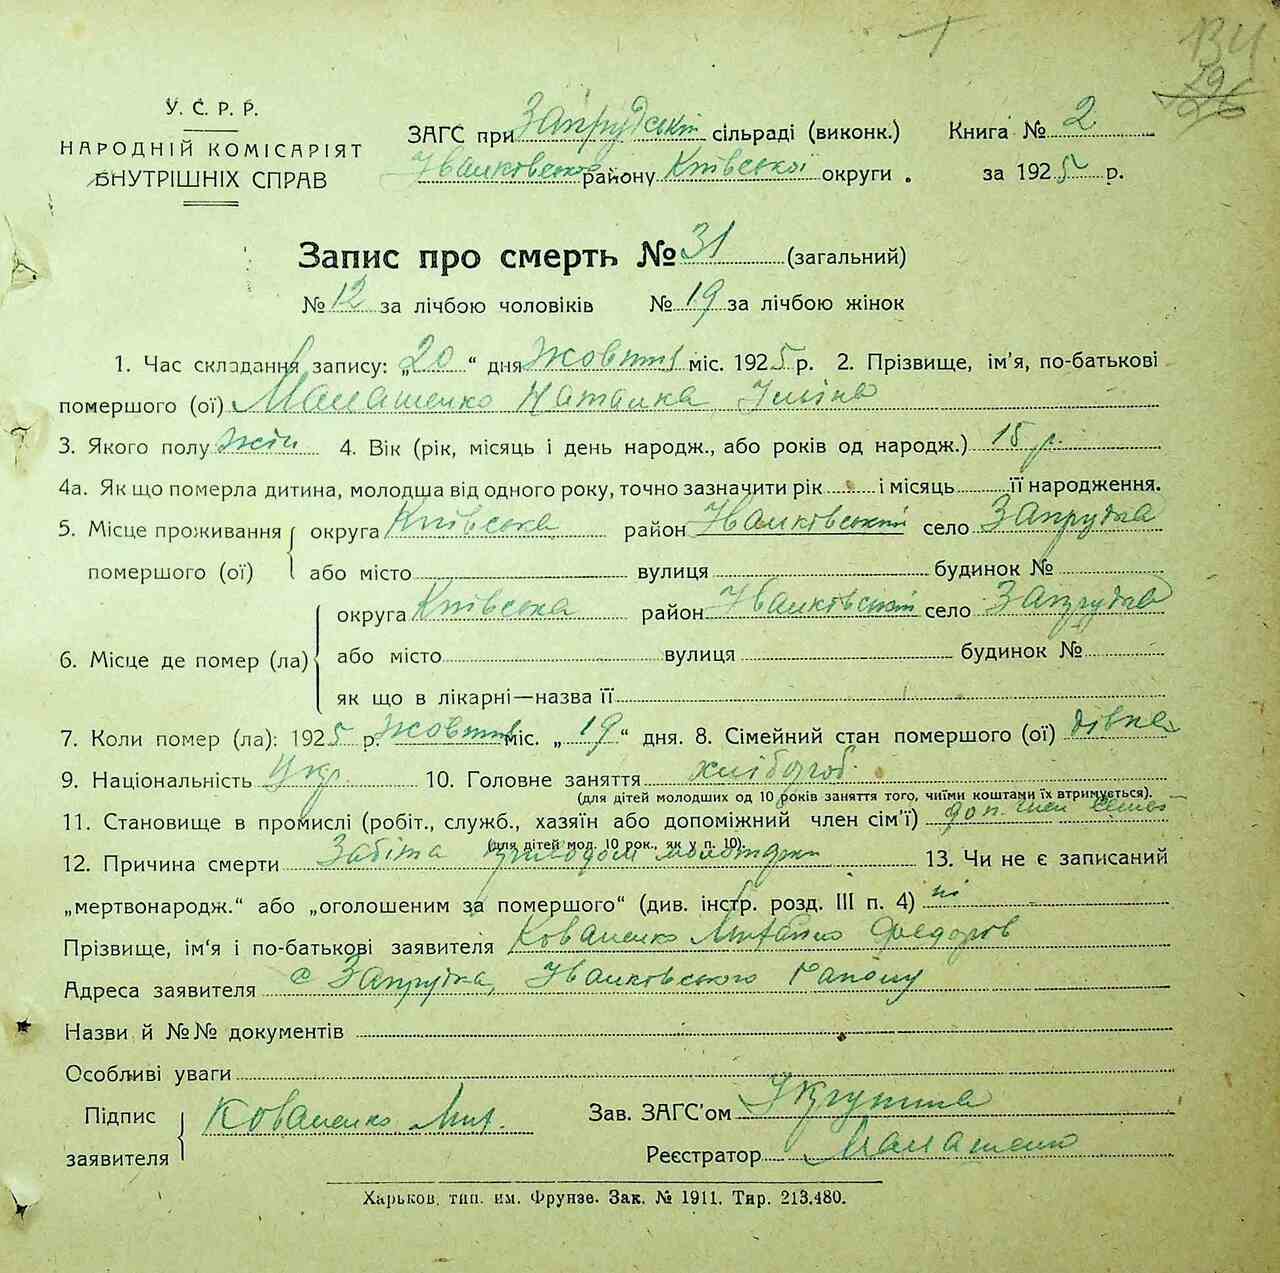 134
У. С. Р. Р.
НАРОДНІЙ КОМІСАРІЯТ
ВНУТРІШНІХ СПРАВ
ЗАГС при Запрудській сільраді (виконк.) Книга № 2
Іванковського району Київської округи. за 1925 р.
Запис про смерть № 31 (загальний)
№ 12 за лічбою чоловіків № 19 за лічбою жінок
1. Час складання запису: „20“ дня Жовтня міс. 1925 р. 2. Прізвище, ім'я, по-батькові
помершого (ої) Малашенко Наталка Ілліна
3. Якого полу жін 4. Вік (рік, місяць і день народж., або років од народж.) 15 р.
4а. Як що померла дитина, молодша від одного року, точно зазначити рік і місяць її народження.
5. Місце проживання округа Київська район Іванковський село Запрудка
помершого (ої) або місто вулиця будинок №
округа Київська район Іванковський село Запрудка
6. Місце де помер (ла) або місто вулиця будинок №
як що в лікарні—назва її
7. Коли помер (ла): 1925 р. Жовтня міс. „19“ дня. 8. Сімейний стан помершого (ої) дівка
9. Національність Укр. 10. Головне заняття хлібороб.
(для дітей молодших од 10 років заняття того, чиїми коштами їх втримується).
11. Становище в промислі (робіт., служб., хазяїн або допоміжний член сім'ї) доп. член семьі
(для дітей мод. 10 рок., як у п. 10).
12. Причина смерти Забіта молотарки 13. Чи не є записаний
„мертвонародж.“ або „оголошеним за помершого“ (див. інстр. розд. III п. 4) ні
Прізвище, ім'я і по-батькові заявителя Коваленко Михайло Федоров
Адреса заявителя с Запрудка, Іванковського району
Назви й №№ документів
Особливі уваги
Підпис заявителя Коваленко Мих. Зав. ЗАГС'ом
Реєстратор Малашенко
Харьков, тип. им. Фрунзе. Зак. № 1911. Тир. 213.480.